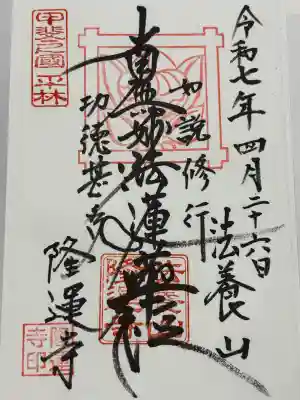 令和七年四月二十六日
法養山
如説修行
南無妙法蓮華経
功徳甚克
隆運寺
甲斐之國
平林
寺印